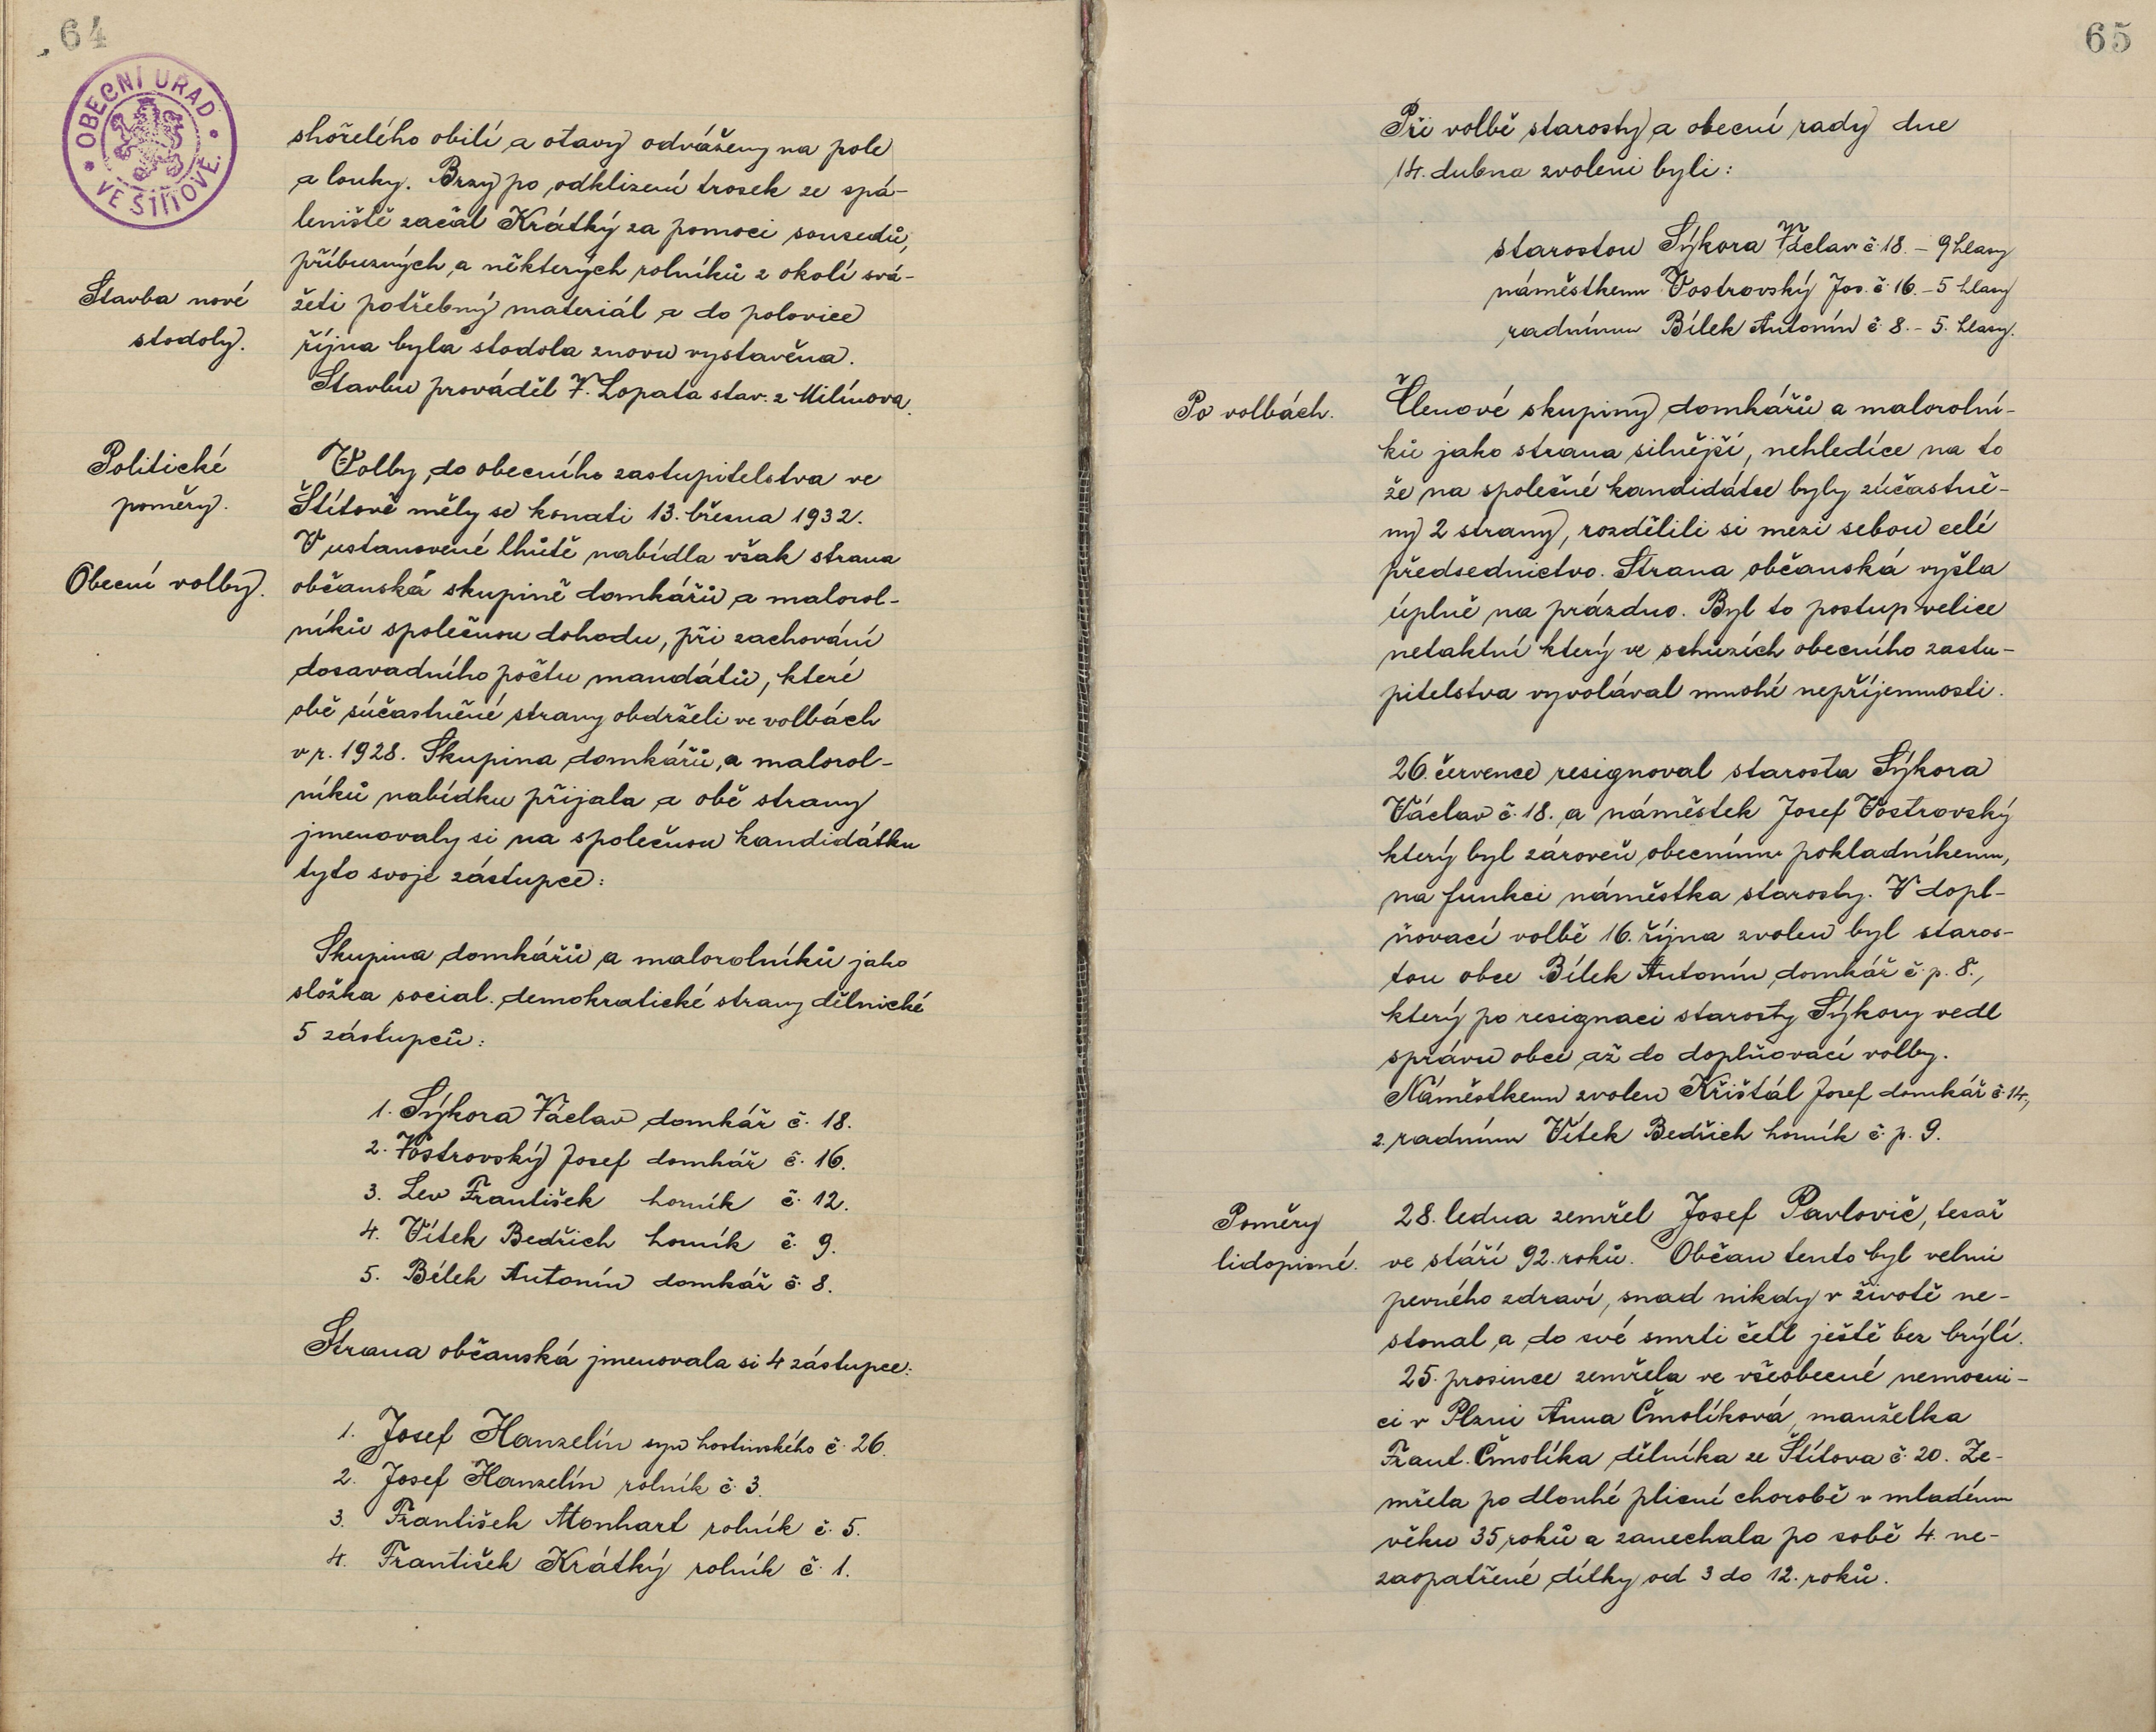 64
OBECNÍ ÚŘAD
VE ŠTÍTOVĚ
shořelého obilí a otavy odváženy na pole
a louky. Brzy po odklizení trosek ze spá-
leniště začal Krátký za pomoci sousedů,
příbuzných a některých rolníků z okolí svá-
Stavba nové
stodoly.
žeti potřebný materiál a do polovice
října byla stodola znovu vystavěna.
Stavbu prováděl V. Lopata stav. z Milínova.
Politické
poměry.
Volby do obecního zastupitelstva ve
Štítově měly se konati 13. března 1932.
V ustanovené lhůtě nabídla však strana
Obecní volby.
občanská skupině domkářů a malorol-
níků společnou dohodu, při zachování
dosavadního počtu mandátů, které
obě súčastněné strany obdrželi ve volbách
v r. 1928. Skupina domkářů, a malorol-
níků nabídku přijala a obě strany
jmenovaly si na společnou kandidátku
tyto svoje zástupce:
Skupina domkářů a malorolníků jako
složka social. demokratické strany dělnické
5 zástupců:
1. Sýkora Václav domkář č. 18.
2. Vostrovský Josef domkář č. 16.
3. Lev František horník č. 12.
4. Vítek Bedřich horník č. 9.
5. Bílek Antonín domkář č. 8.
Strana občanská jmenovala si 4 zástupce:
1. Josef Hanzelín syn hostinského č. 26.
2. Josef Hanzelín rolník č. 3.
3. František Monhart rolník č. 5.
4. František Krátký rolník č. 1.
65
Při volbě starosty a obecní rady dne
14. dubna zvoleni byli:
starostou Sýkora Václav č. 18. – 9 hlasy
náměstkem Vostrovský Jos. č. 16. – 5 hlasy
radním Bílek Antonín č. 8. – 5. hlasy.
Po volbách.
Členové skupiny domkářů a malorolní-
ků jako strana silnější, nehledíce na to
že na společné kandidátce byly zúčastně-
ny 2 strany, rozdělili si mezi sebou celé
předsednictvo. Strana občanská vyšla
úplně na prázdno. Byl to postup velice
netaktní který ve schůzích obecního zastu-
pitelstva vyvolával mnohé nepříjemnosti.
26. července resignoval starosta Sýkora
Václav č. 18. a náměstek Josef Vostrovský
který byl zároveň obecním pokladníkem,
na funkci náměstka starosty. V dopl-
ňovací volbě 16. října zvolen byl staros-
tou obce Bílek Antonín domkář č. p. 8.,
který po resignaci starosty Sýkory vedl
správu obce až do doplňovací volby.
Náměstkem zvolen Křišťál Josef domkář č. 14,
2. radním Vítek Bedřich horník č. p. 9.
Poměry
lidopisné.
28. ledna zemřel Josef Pavlovič, tesař
ve stáří 92. roků. Občan tento byl velmi
pevného zdraví, snad nikdy v životě ne-
stonal a do své smrti četl ještě bez brýlí.
25. prosince zemřela ve všeobecné nemocni-
ci v Plzni Anna Čmolíková, manželka
Frant. Čmolíka dělníka ze Štítova č. 20. Ze-
mřela po dlouhé plicní chorobě v mladém
věku 35 roků a zanechala po sobě 4 ne-
zaopatřené dítky od 3 do 12. roků.